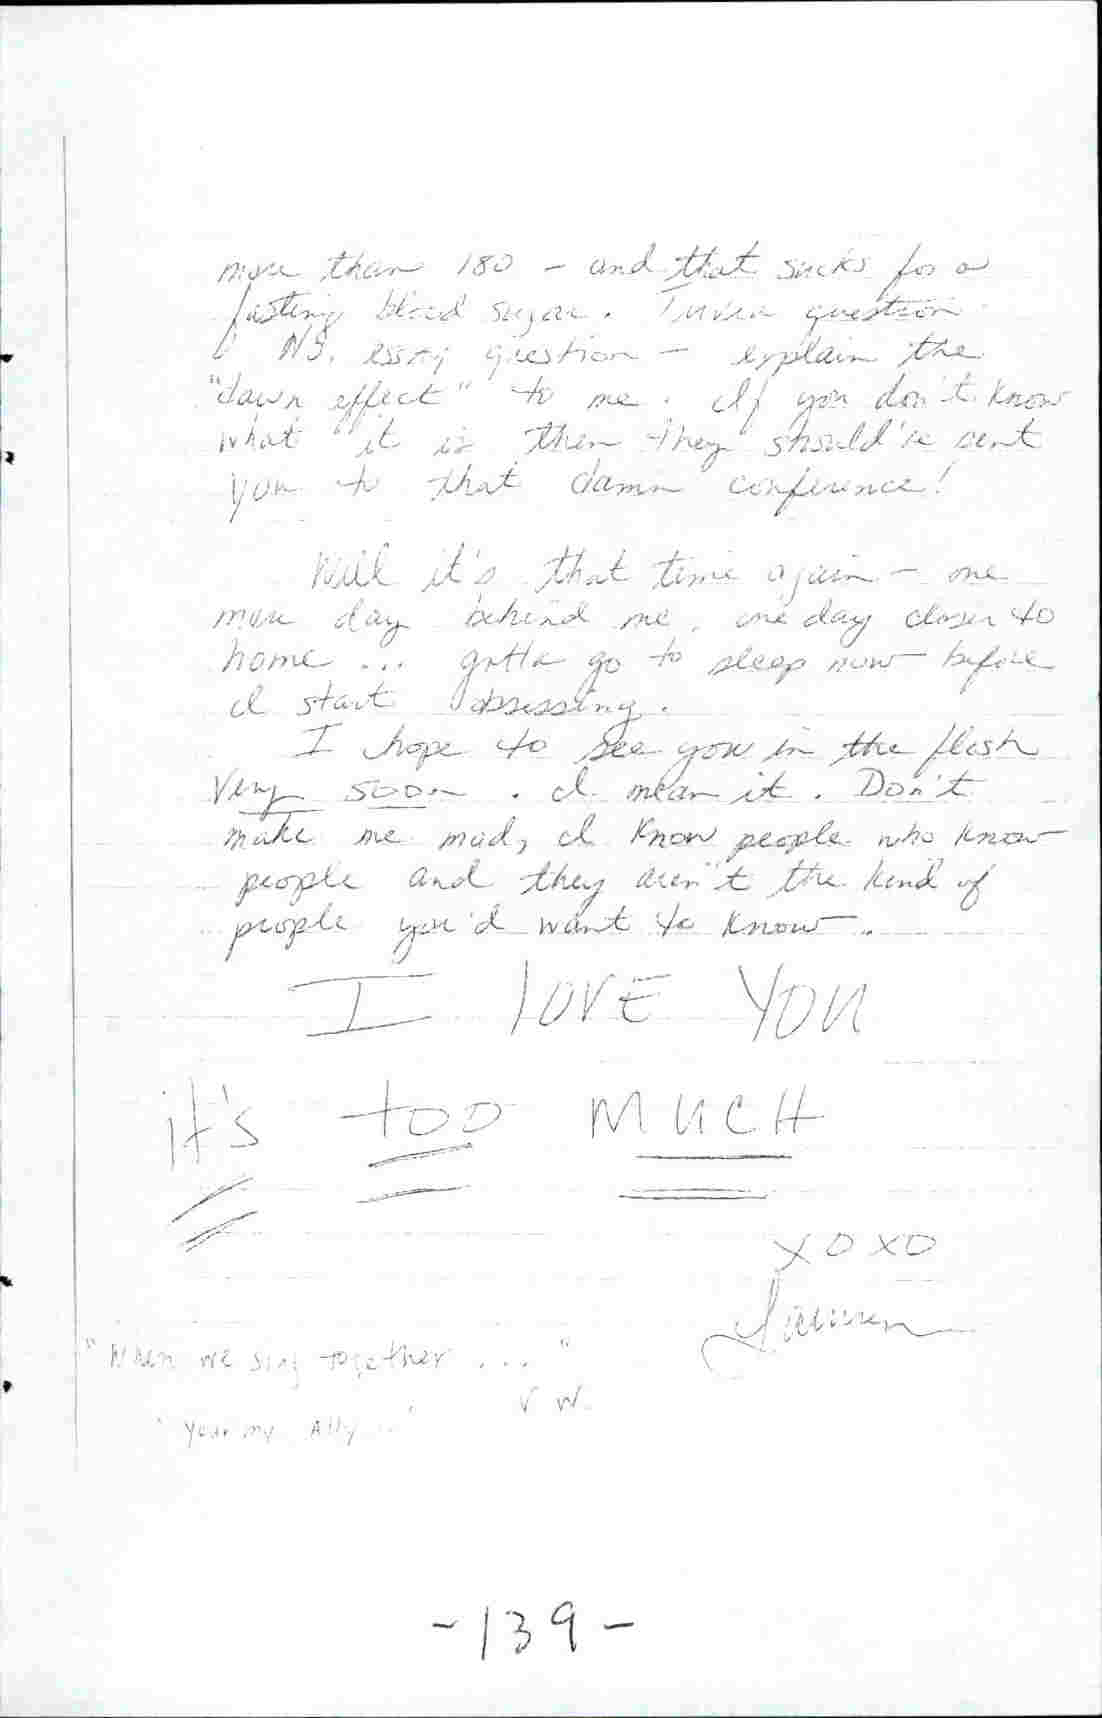 more than 180 - and that sucks for a
fasting blood sugar. Trivia question
NO, essay question - explain the
"dawn effect" to me. If you don't know
what it is then they should've sent
you to that damn conference!
Well it's that time again - one
more day behind me, one day closer to
home ... gotta go to sleep now before
I start obsessing.
I hope to see you in the flesh
Very soon. I mean it. Don't
make me mad, I know people who know
people and they aren't the kind of
people you'd want to know.
I lOVE YOU
it's too MUCH
XOXO
Lauren
"When we sing together ..."
V W.
"Your my Ally ..."
-139-